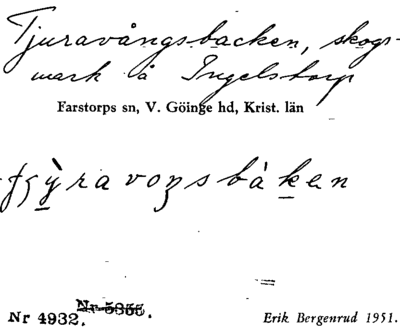 Tjuravångsbacken, skogs-
mark å Ingelstorp
Farstorps sn, V. Göinge hd, Krist. län
Nr 5355.
Nr 4932.
Erik Bergenrud 1951.